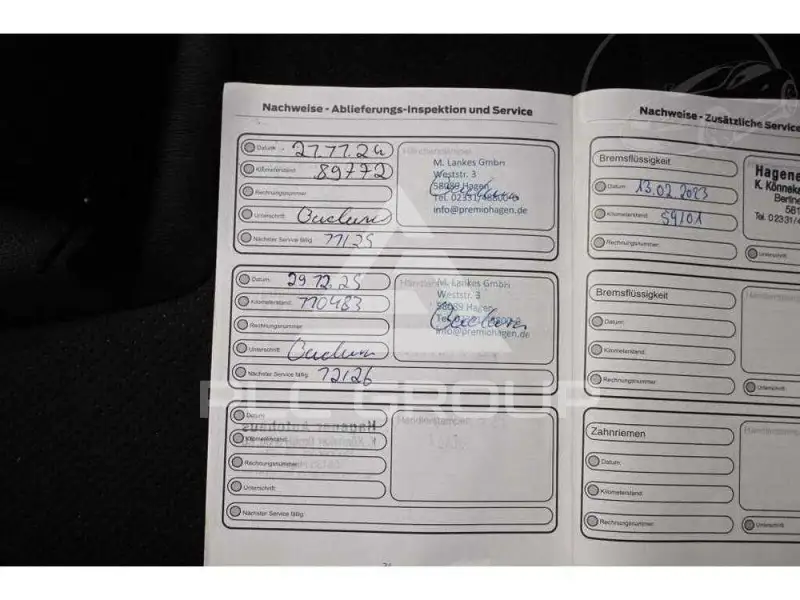 Nachweise - Ablieferungs-Inspektion und Service
Datum: 27.11.24
Kilometerstand: 89772
Rechnungsnummer:
Unterschrift:
Nächster Service fällig: 11/25
Händlerstempel
M. Lankes GmbH
Weststr. 3
58089 Hagen
Tel. 02331/
info@premiohagen.de
Datum: 29.12.25
Kilometerstand: 110483
Rechnungsnummer:
Unterschrift:
Nächster Service fällig: 12/26
M. Lankes GmbH
Weststr. 3
58089 Hagen
Tel.
info@premiohagen.de
Datum:
Kilometerstand:
Rechnungsnummer:
Unterschrift:
Nächster Service fällig:
Händlerstempel
Nachweise - Zusätzliche Service
Bremsflüssigkeit
Datum: 13.02.2023
Kilometerstand: 59101
Rechnungsnummer:
Hagene
K. Könneke
Berline
581
Tel. 02331/4
Unterschrift:
Bremsflüssigkeit
Datum:
Kilometerstand:
Rechnungsnummer:
Unterschrift:
Zahnriemen
Datum:
Kilometerstand:
Rechnungsnummer:
Unterschrift:
PLC GROUP